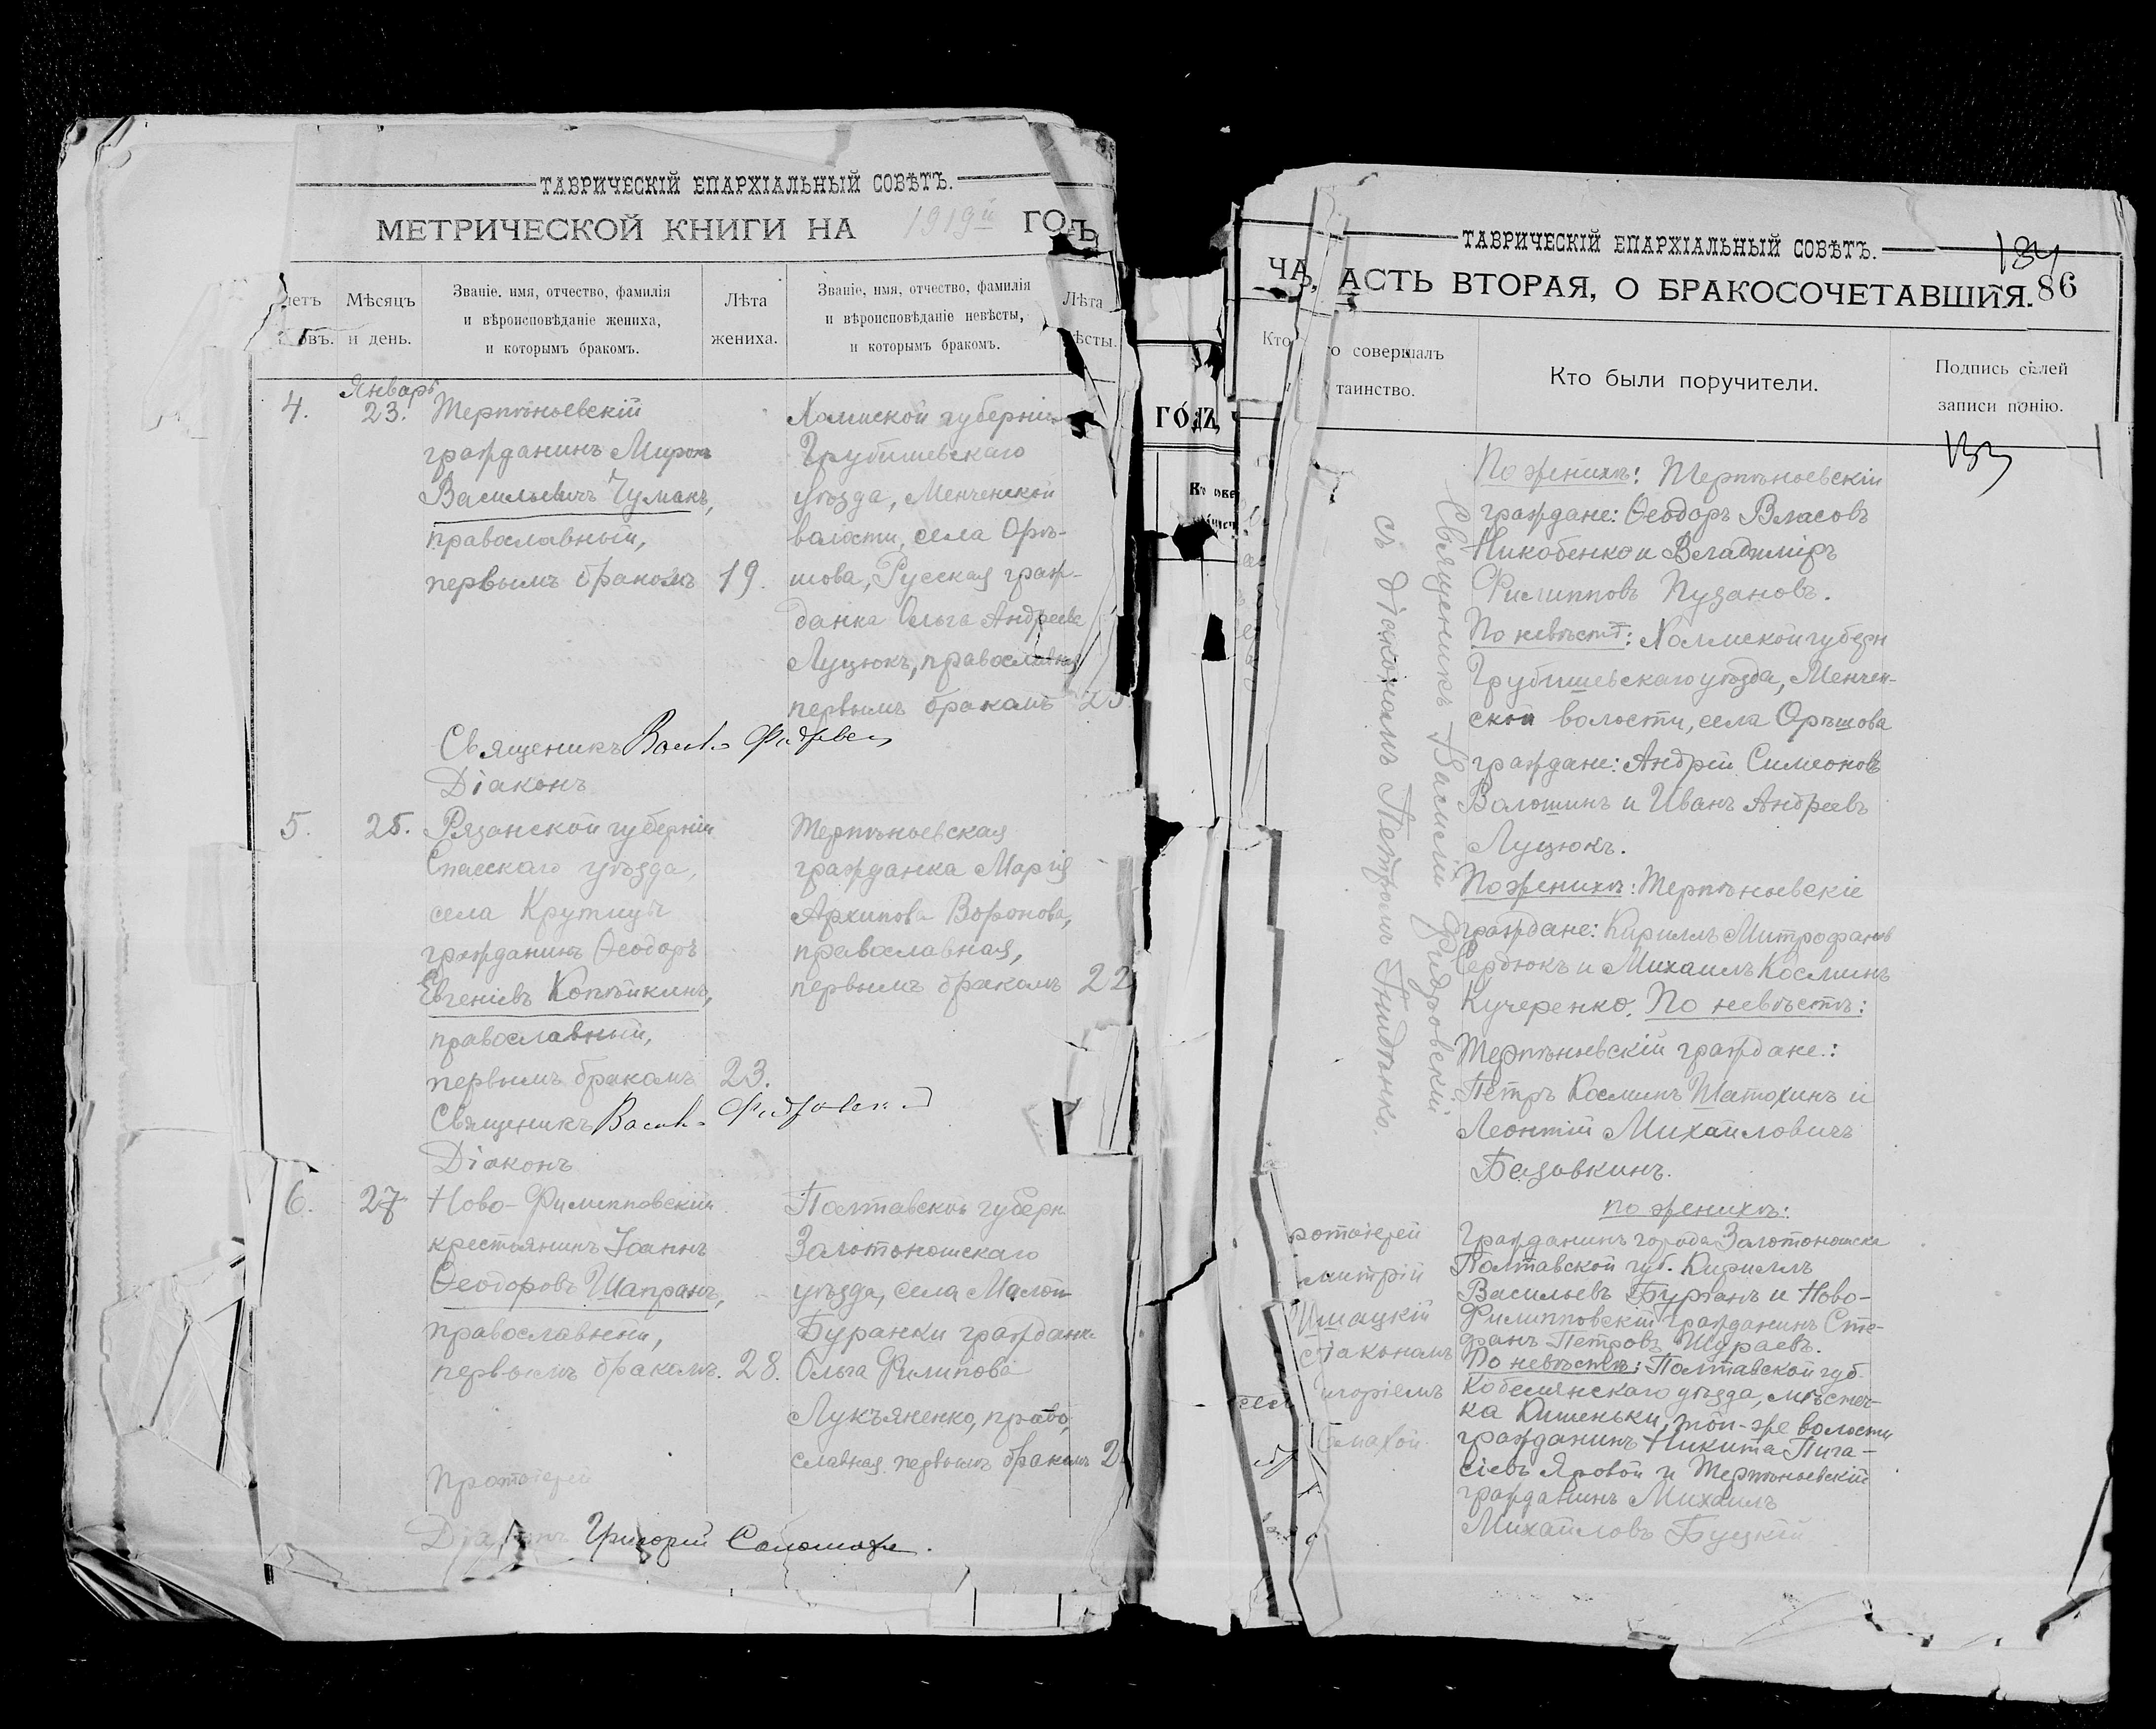 ТАВРИЧЕСКІЙ ЕПАРХІАЛЬНЫЙ СОВѢТЪ.
МЕТРИЧЕСКОЙ КНИГИ НА 1919й ГОДЪ
Мѣсяцъ и день.
Званіе, имя, отчество, фамилія и вѣроисповѣданіе жениха, и которымъ бракомъ.
Лѣта жениха.
Званіе, имя, отчество, фамилія и вѣроисповѣданіе невѣсты, и которымъ бракомъ.
Лѣта
4.
Январь
23.
Терпѣньевскій
гражданинъ Миронъ
Васильевичъ Чумакъ,
православный,
первымъ бракомъ
19.
Холмской губерніи
Грубешевскаго
уѣзда, Менченской
волости, села Орѣ-
шова, Русская граж-
данка Ольга Андреева
Луцюкъ, православная
первымъ бракомъ
Священикъ
Діаконъ
5.
25.
Рязанской губерніи
Спасскаго уѣзда,
села Крутицъ
гражданинъ Ѳеодоръ
Евгеніевъ Копѣйкинъ,
православный,
первымъ бракомъ
23.
Терпѣньевская
гражданка Марія
Архипова Воронова,
православная,
первымъ бракомъ
22
Священикъ
Діаконъ
6.
27
Ново-Филипповскій
крестьянинъ Іоаннъ
Ѳеодоровъ Шапранъ,
православный,
первымъ бракомъ.
28.
Полтавской губерн
Золотоношскаго
уѣзда, села Малой
Буранки гражданка
Ольга Филипова
Лукъяненко, право,
славная первымъ бракомъ
Протоіерей
Діаконъ Григорій
ГОДЪ,
ТАВРИЧЕСКІЙ ЕПАРХІАЛЬНЫЙ СОВѢТЪ.
АСТЬ ВТОРАЯ, О БРАКОСОЧЕТАВШИ
86
Кто
совершалъ
таинство.
Кто были поручители.
Подпись
записи
Священникъ Василій
съ діакономъ Петромъ
По женихѣ: Терпѣньевскіи
граждане: Ѳеодоръ Власовъ
Никобенко и Владиміръ
Филипповъ Пузановъ.
По невѣстѣ: Холмской губерн
Грубешевскаго уѣзда, Менчен-
ской волости, села Орѣшова
граждане: Андрій Симеоновъ
Волошинъ и Иванъ Андреевъ
Луцюкъ.
По женихѣ: Терпѣньевскіе
граждане: Кириллъ Митрофановъ
Сердюкъ и Михаилъ Косминъ
Кучеренко. По невѣстѣ:
Терпѣньевскій граждане:
Петръ Косминъ Шатохинъ и
Леонтій Михайловичъ
по женихѣ:
Гражданинъ города Золотоношска
Полтавской губ. Кириллъ
Васильевъ Бурганъ и Ново-
Филипповскій гражданинъ Сте-
фанъ Петровъ Шураевъ.
По невѣстѣ: Полтавской губ.
Кобелянскаго уѣзда, мѣстеч-
ка Кишеньки, той-же волости
гражданинъ Никита Пига-
сіевъ Яровой и Терпѣньевскій
гражданинъ Михаилъ
Михайловъ Буцкій